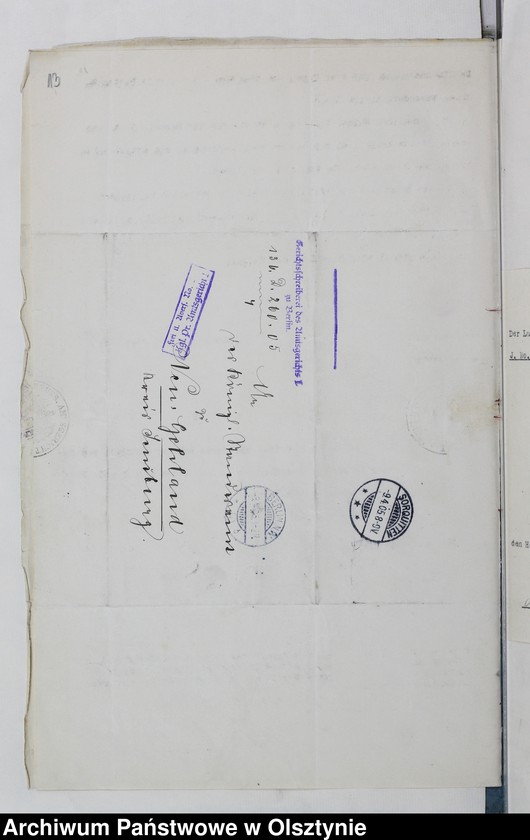 113
Gerichtsschreiberei des Amtsgerichts I
zu Berlin.
136. D. 260. 05
An
das Königl. Standesamt
zu
Neu, Gehland
Kreis Sensburg.
Frei lt. Avers. No.
Kgl. Pr. Amtsgericht
SORQUITTEN
-9.4.05.8-9V.
Der
den
Archiwum Państwowe w Olsztynie